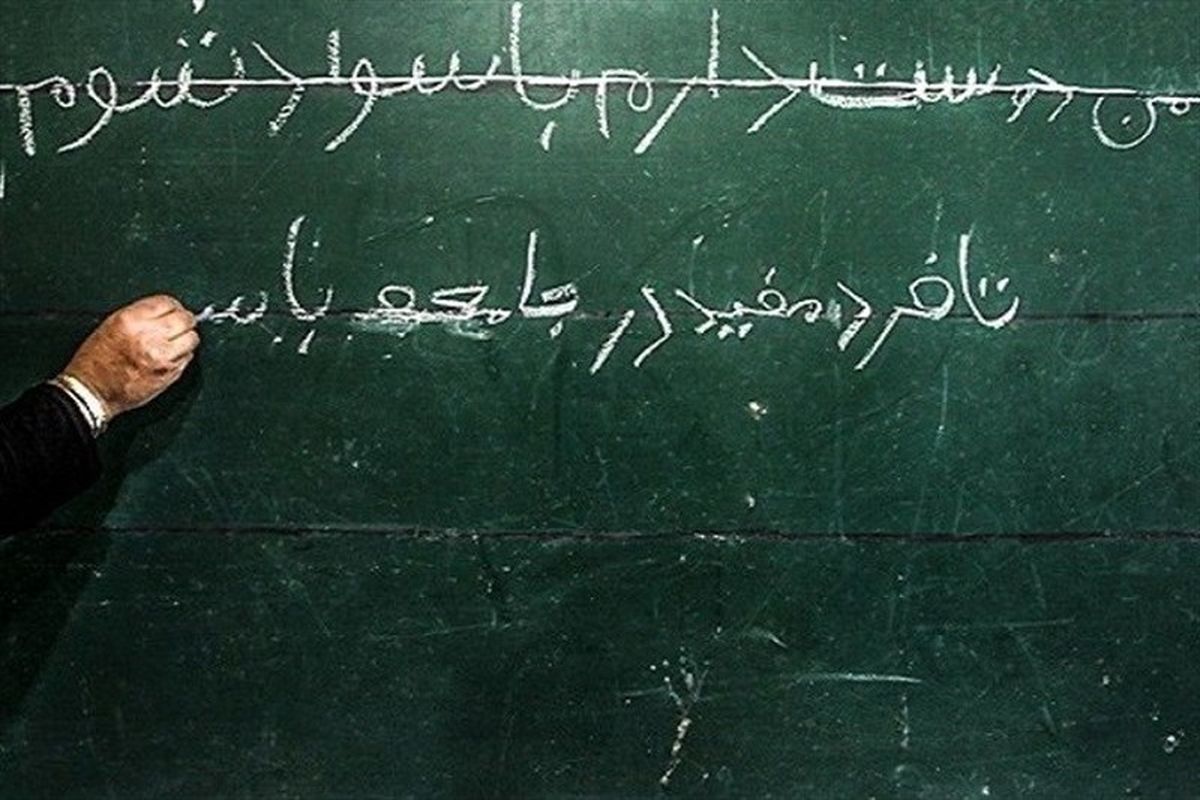 من دوست دارم با سواد شوم
تا فرد مفید در جامعه باس